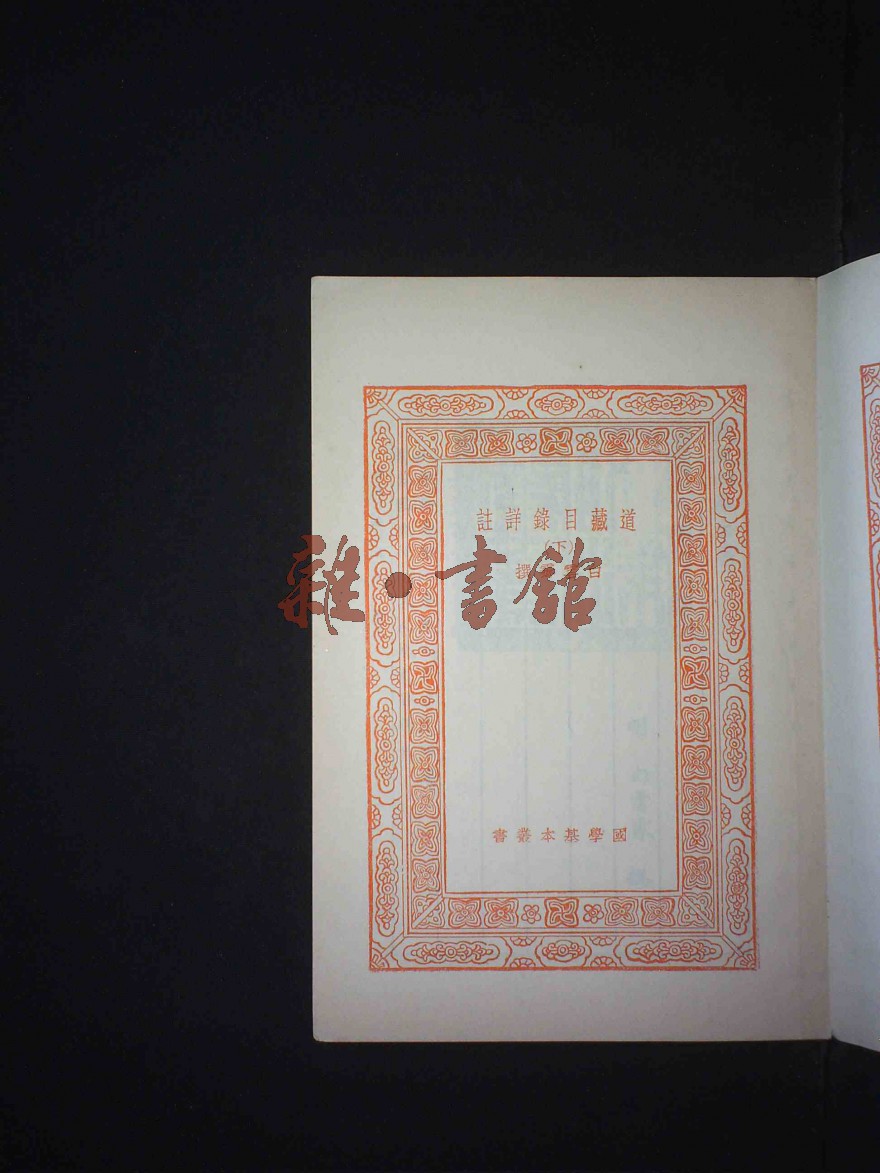 道藏目錄詳註
(下)
白雲霽撰
國學基本叢書
雜·書館